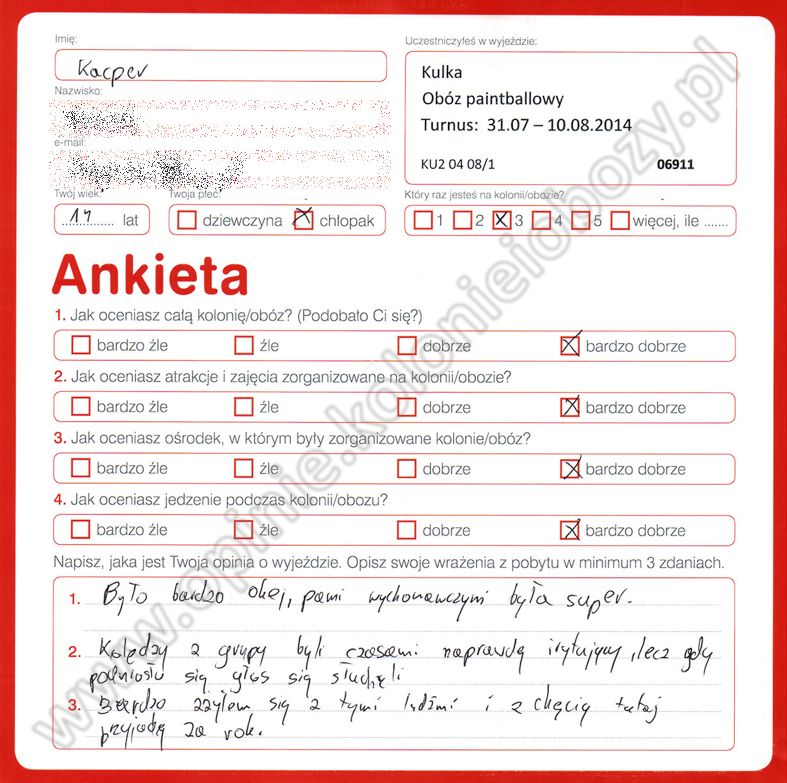 Imię:
Kacper
Nazwisko:
e-mail:
Twój wiek:
14 lat
Twoja płeć:
dziewczyna chłopak
Uczestniczyłeś w wyjeździe:
Kulka
Obóz paintballowy
Turnus: 31.07 – 10.08.2014
KU2 04 08/1 06911
Który raz jesteś na kolonii/obozie?
1 2 3 4 5 więcej, ile .......
Ankieta
1. Jak oceniasz całą kolonię/obóz? (Podobało Ci się?)
bardzo źle źle dobrze bardzo dobrze
2. Jak oceniasz atrakcje i zajęcia zorganizowane na kolonii/obozie?
bardzo źle źle dobrze bardzo dobrze
3. Jak oceniasz ośrodek, w którym były zorganizowane kolonie/obóz?
bardzo źle źle dobrze bardzo dobrze
4. Jak oceniasz jedzenie podczas kolonii/obozu?
bardzo źle źle dobrze bardzo dobrze
Napisz, jaka jest Twoja opinia o wyjeździe. Opisz swoje wrażenia z pobytu w minimum 3 zdaniach.
1. Było bardzo okej, pani wychonawczyni była super.
2. Kolędzy z grupy byli czasami naprawdę irytujący, lecz gdy
podniosło się głos się słuchęli
3. Bardzo zżyłem się z tymi ludźmi i z chęcią tutaj
przyjadę za rok.
www.opinie.kolonieiobozy.pl